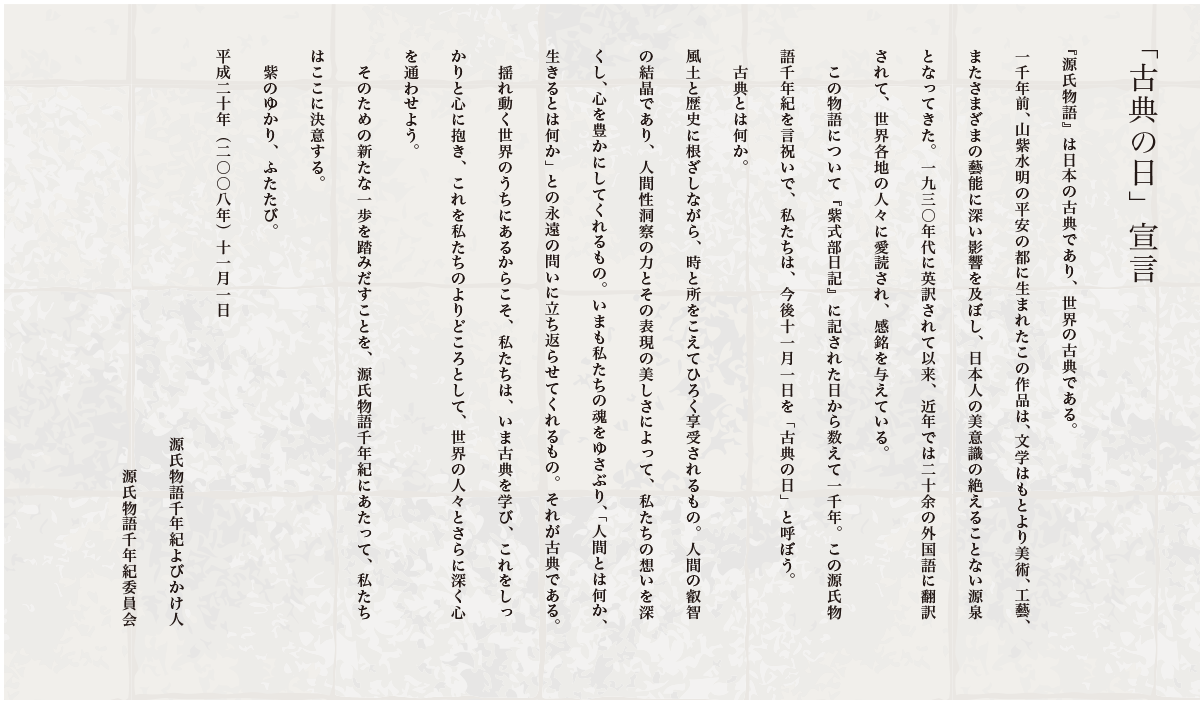 「古典の日」宣言
『源氏物語』は日本の古典であり、世界の古典である。
一千年前、山紫水明の平安の都に生まれたこの作品は、文学はもとより美術、工藝、
またさまざまの藝能に深い影響を及ぼし、日本人の美意識の絶えることない源泉
となってきた。一九三〇年代に英訳されて以来、近年では二十余の外国語に翻訳
されて、世界各地の人々に愛読され、感銘を与えている。
この物語について『紫式部日記』に記された日から数えて一千年。この源氏物
語千年紀を言祝いで、私たちは、今後十一月一日を「古典の日」と呼ぼう。
古典とは何か。
風土と歴史に根ざしながら、時と所をこえてひろく享受されるもの。人間の叡智
の結晶であり、人間性洞察の力とその表現の美しさによって、私たちの想いを深
くし、心を豊かにしてくれるもの。いまも私たちの魂をゆさぶり、「人間とは何か、
生きるとは何か」との永遠の問いに立ち返らせてくれるもの。それが古典である。
揺れ動く世界のうちにあるからこそ、私たちは、いま古典を学び、これをしっ
かりと心に抱き、これを私たちのよりどころとして、世界の人々とさらに深く心
を通わせよう。
そのための新たな一歩を踏みだすことを、源氏物語千年紀にあたって、私たち
はここに決意する。
紫のゆかり、ふたたび。
平成二十年（二〇〇八年）十一月一日
源氏物語千年紀よびかけ人
源氏物語千年紀委員会